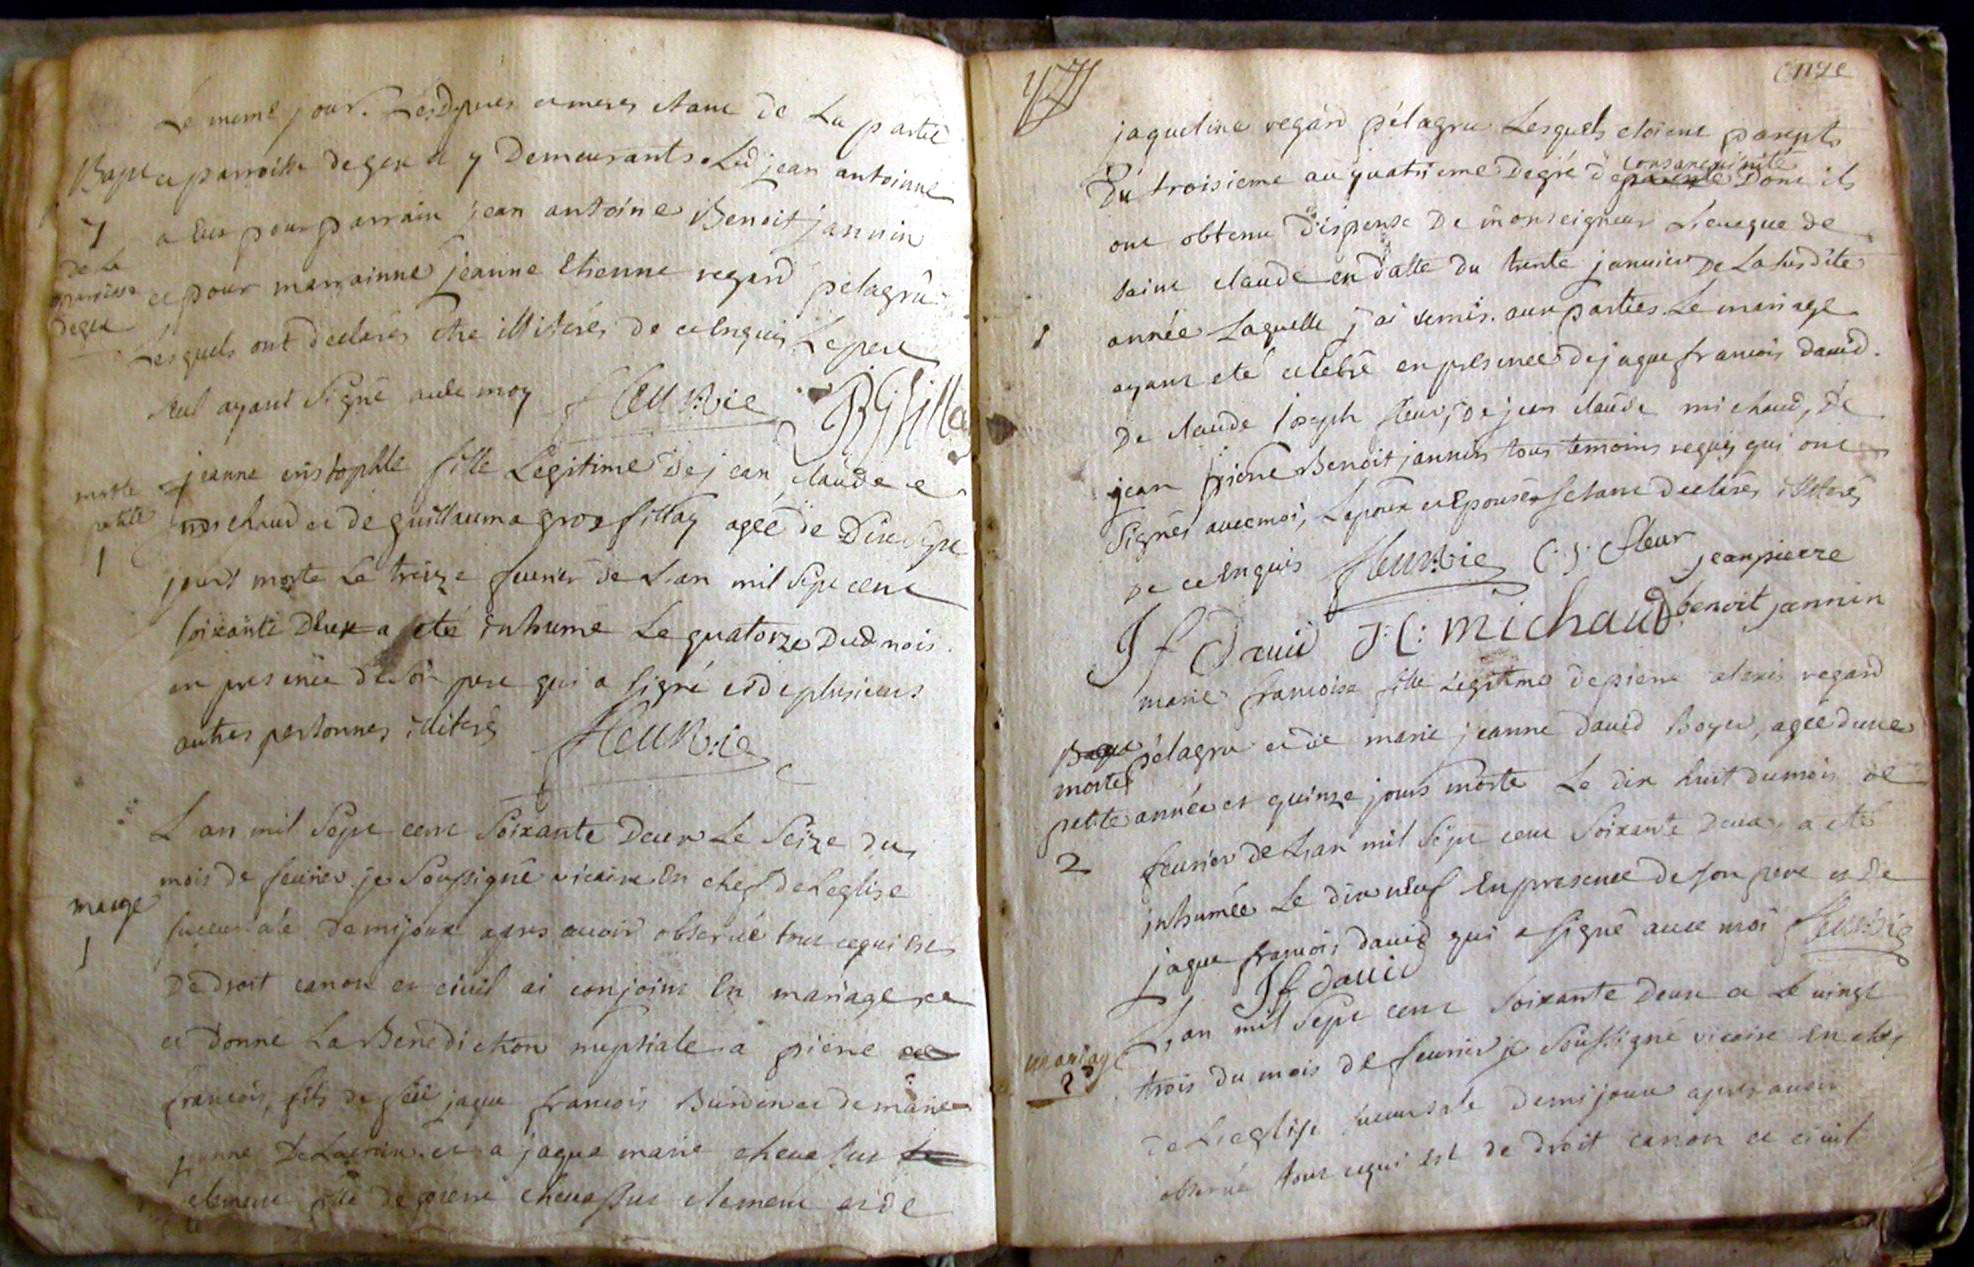 Le meme jour. Lesd peres et meres etant de La partie
Bapt et parroisse de gex et y Demeurants. Led jean antoinne
7 a eut pour parrain jean antoine Benoit jannin
de la parroisse de gex
et pour marrainne jeanne Etienne regard pelagru
Lesquels ont declarés etre illiterés de ce Enquis Le pere
seul ayant Signé avec moy fleurie
morte petite 1
jeanne cristophle fille Legitime de jean claude
michaud et de guillauma gros fillay ageé de Dix sept
jours morte Le treize fevrier de Lan mil Sept cent
soixante Deux a eté inhumé Le quatorze Dud mois
en presence de son pere qui a signé et de plusieurs
autres personnes illiterés fleurie
Lan mil Sept cent Soixante Deux Le Seize du
mois de fevrier je Soussigné vicaire En chef de Leglise
marge 1
succursale Demijoux apres avoir observé tout ce qui est
De droit canon et civil ai conjoint En mariage
et Donné La Benediction nuptiale a pierre
francois, fils de feu jaque francois Burdin et de marie
et a jaque marie chevassus
clement fille de pierre chevassus clement et de
onze
jaqueline regard pélagru Lesquels etoient parents
Du troisieme au quatrieme Degré de parenté consanguinité Dont ils
ont obtenu Dispense De monseigneur Leveque de
saint claude en datte du trente janvier De La susdite
1
année Laquelle j'ai remis aux parties. Le mariage
ayant eté celebré en presence de jaque francois david.
De claude Joseph fleur, De jean claude michaud, De
jean pierre Benoit jannin tous temoins requis qui ont
Signés avec moi, Lepoux et Epouse s'etant declarés illiterés
De ce Enquis fleurie C. J. fleur jean pierre
J f David J: C: michaud benoit jannin
marie francoise fille Legitime de pierre alexis regard
Bapt
morte petite 2
pélagru et de marie jeanne david Boyer, ageé dune
année et quinze jours morte Le dix huit du mois de
fevrier de Lan mil Sept cent Soixante Deux a eté
inhumée Le dix neuf En presence de son pere et de
jaque francois david qui a signé avec moi fleurie
J f david
Lan mil Sept cent Soixante Deux et Le vingt
mariage 2
trois du mois de fevrier je Soussigné vicaire En chef
de Leglise succursale Demijoux apres avoir
observé tout ce qui est de droit canon et civil